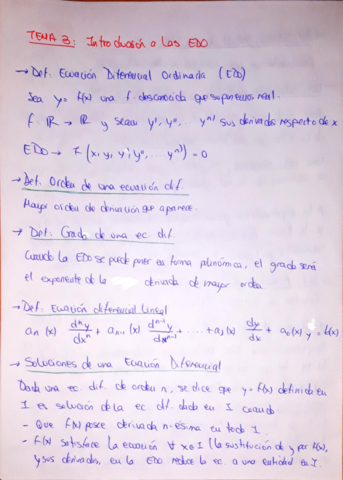 TEMA 3: Introducción a las EDO
→ Def. Ecuación Diferencial Ordinaria (EDO)
Sea y = f(x) una f. desconocida que suponemos real.
f: ℝ → ℝ y sean y', y'', ... yⁿ⁾ sus derivadas respecto de x
EDO → F(x, y, y', y'', ... yⁿ⁾) = 0
→ Def. Orden de una ecuación dif.
Mayor orden de derivación que aparece.
→ Def. Grado de una ec. dif.
Cuando la EDO se puede poner en forma polinómica, el grado será
el exponente de la derivada de mayor orden
→ Def. Ecuación diferencial lineal
aₙ(x) dⁿy/dxⁿ + aₙ₋₁(x) dⁿ⁻¹y/dxⁿ⁻¹ + ... + a₁(x) dy/dx + a₀(x) y = f(x)
→ Soluciones de una Ecuación Diferencial
Dada una ec. dif. de orden n, se dice que y = f(x) definida en
I es solución de la ec. dif. dada en I cuando
- Que f(x) posee derivada n-ésima en todo I.
- f(x) satisface la ecuación ∀ x∈I (la sustitución de y por f(x),
y sus derivadas, en la EDO reduce la ec. a una entidad en I.